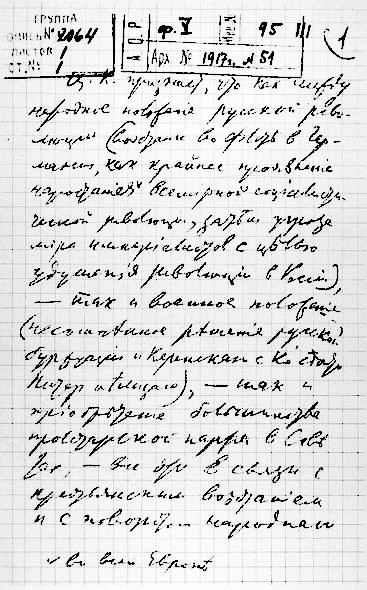 ГРУППА
ОПИСЬ № 2064
ЛИСТОВ 1
СТ. № 1
ф. V
95 III
Арх № 1917г., № 51
1
Ц. К. признает, что как между
народное положение русской рево-
люции (восстание во флоте в Гер-
мании, как крайнее проявление
нарастания всемирной социалисти-
ческой революции, затем угроза
мира империалистов с целью
удушения революции в России),
— так и военное положение
(несомненное решение русской
буржуазии и Керенского с Ко сдать
Питер немцам), — так и
приобретение большинства
пролетарской партией в Сове
тах, — все это в связи с
крестьянским восстанием
и с поворотом народного
√ во всей Европе